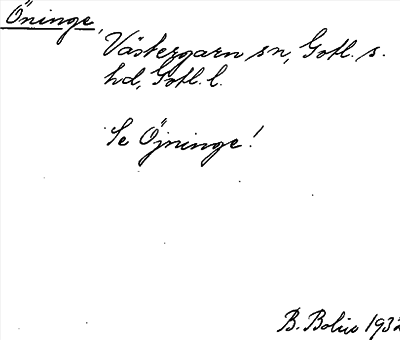 Öninge,
Västergarn sn, Gotl. s.
hd, Gotl. l.
Se Öjninge!
B. Bolin 1932